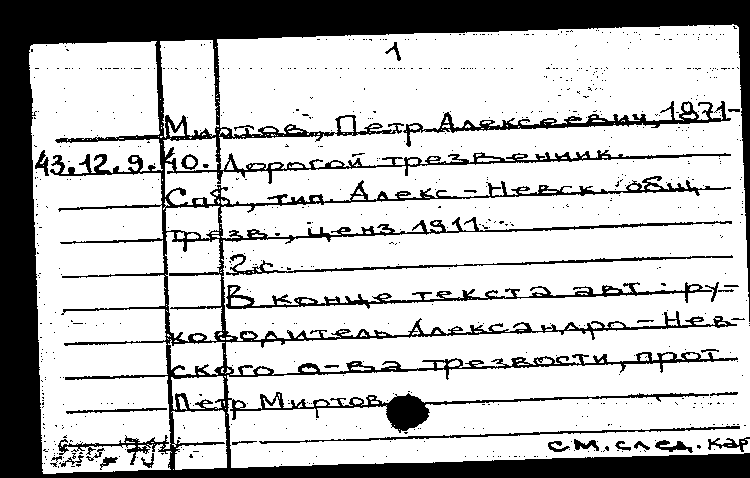 1
Миртов, Петр Алексеевич, 1871-
43.12.9.40. Дорогой трезвенник.
Спб., тип. Алекс-Невск. общ.
трезв., ценз. 1911.
2 с.
В конце текста авт.: ру-
ководитель Александро-Нев-
ского о-ва трезвости, прот
Петр Миртов
см. след. кар